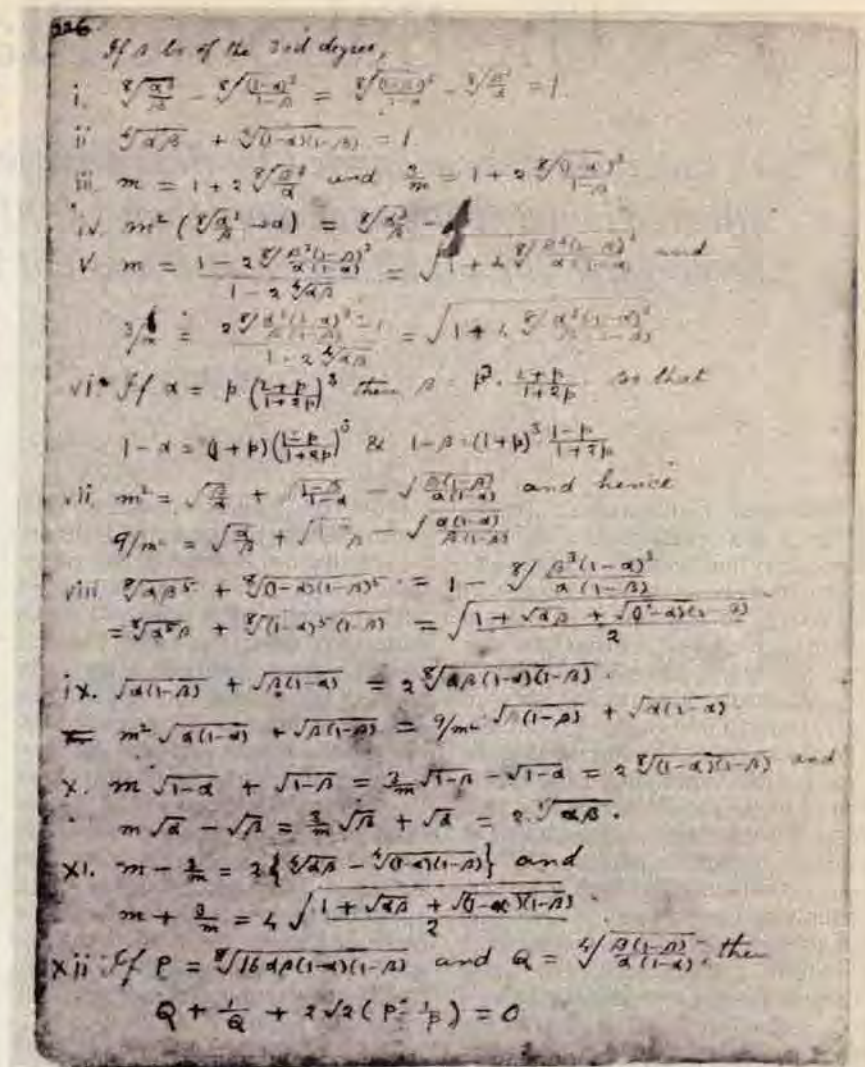 226
If β be of the 3rd degree,
i. ⁸√(α³/β) - ⁸√((1-α)³/(1-β)) = ⁸√((1-β)³/(1-α)) - ⁸√(β³/α) = 1
ii ⁴√(αβ) + ⁴√((1-α)(1-β)) = 1
iii. m = 1 + 2 ⁸√(β³/α) and 3/m = 1 + 2 ⁸√((1-α)³/(1-β))
iv. m² (⁸√(α³/β) - α) = ⁸√(α³/β) -
V. m = (1 - 2 ⁸√(β³(1-β)³/(α(1-α))))/(1 - 2 ⁴√(αβ)) = √(1 + 4 ⁸√(β³(1-β)³/(α(1-α)))) and
3/m = (2 ⁸√(α³(1-α)³/(β(1-β))) - 1)/(1 - 2 ⁴√(αβ)) = √(1 + 4 ⁸√(α³(1-α)³/(β(1-β))))
vi. If α = p ((2+p)/(1+2p))³ then β = p³ · (2+p)/(1+2p) so that
1 - α = (1+p)((1-p)/(1+2p))³ & 1 - β = (1+p)³ (1-p)/(1+2p)
vii. m² = √(β/α) + √((1-β)/(1-α)) - √(β(1-β)/(α(1-α))) and hence
9/m² = √(α/β) + √((1-α)/(1-β)) - √(α(1-α)/(β(1-β)))
viii ⁸√(αβ⁵) + ⁸√((1-α)(1-β)⁵) = 1 - ⁸√(β³(1-α)³/(α(1-β)))
= ⁸√(α⁵β) + ⁸√((1-α)⁵(1-β)) = √((1 + √(αβ) + √((1-α)(1-β)))/2)
ix. √(α(1-β)) + √(β(1-α)) = 2 ⁸√(αβ(1-α)(1-β)).
= m² √(α(1-α)) + √(β(1-β)) = 9/m² √(β(1-β)) + √(α(1-α))
X. m √(1-α) + √(1-β) = 3/m √(1-β) - √(1-α) = 2 ⁸√((1-α)(1-β)) and
m √α - √β = 3/m √β + √α = 2 ⁸√(αβ).
XI. m - 3/m = 2 {⁴√(αβ) - ⁴√((1-α)(1-β))} and
m + 3/m = 4 √((1 + √(αβ) + √((1-α)(1-β)))/2)
xii If P = ⁸√(16αβ(1-α)(1-β)) and Q = ⁴√(β(1-β)/(α(1-α))), then
Q + 1/Q + 2√2 (P - 1/P) = 0